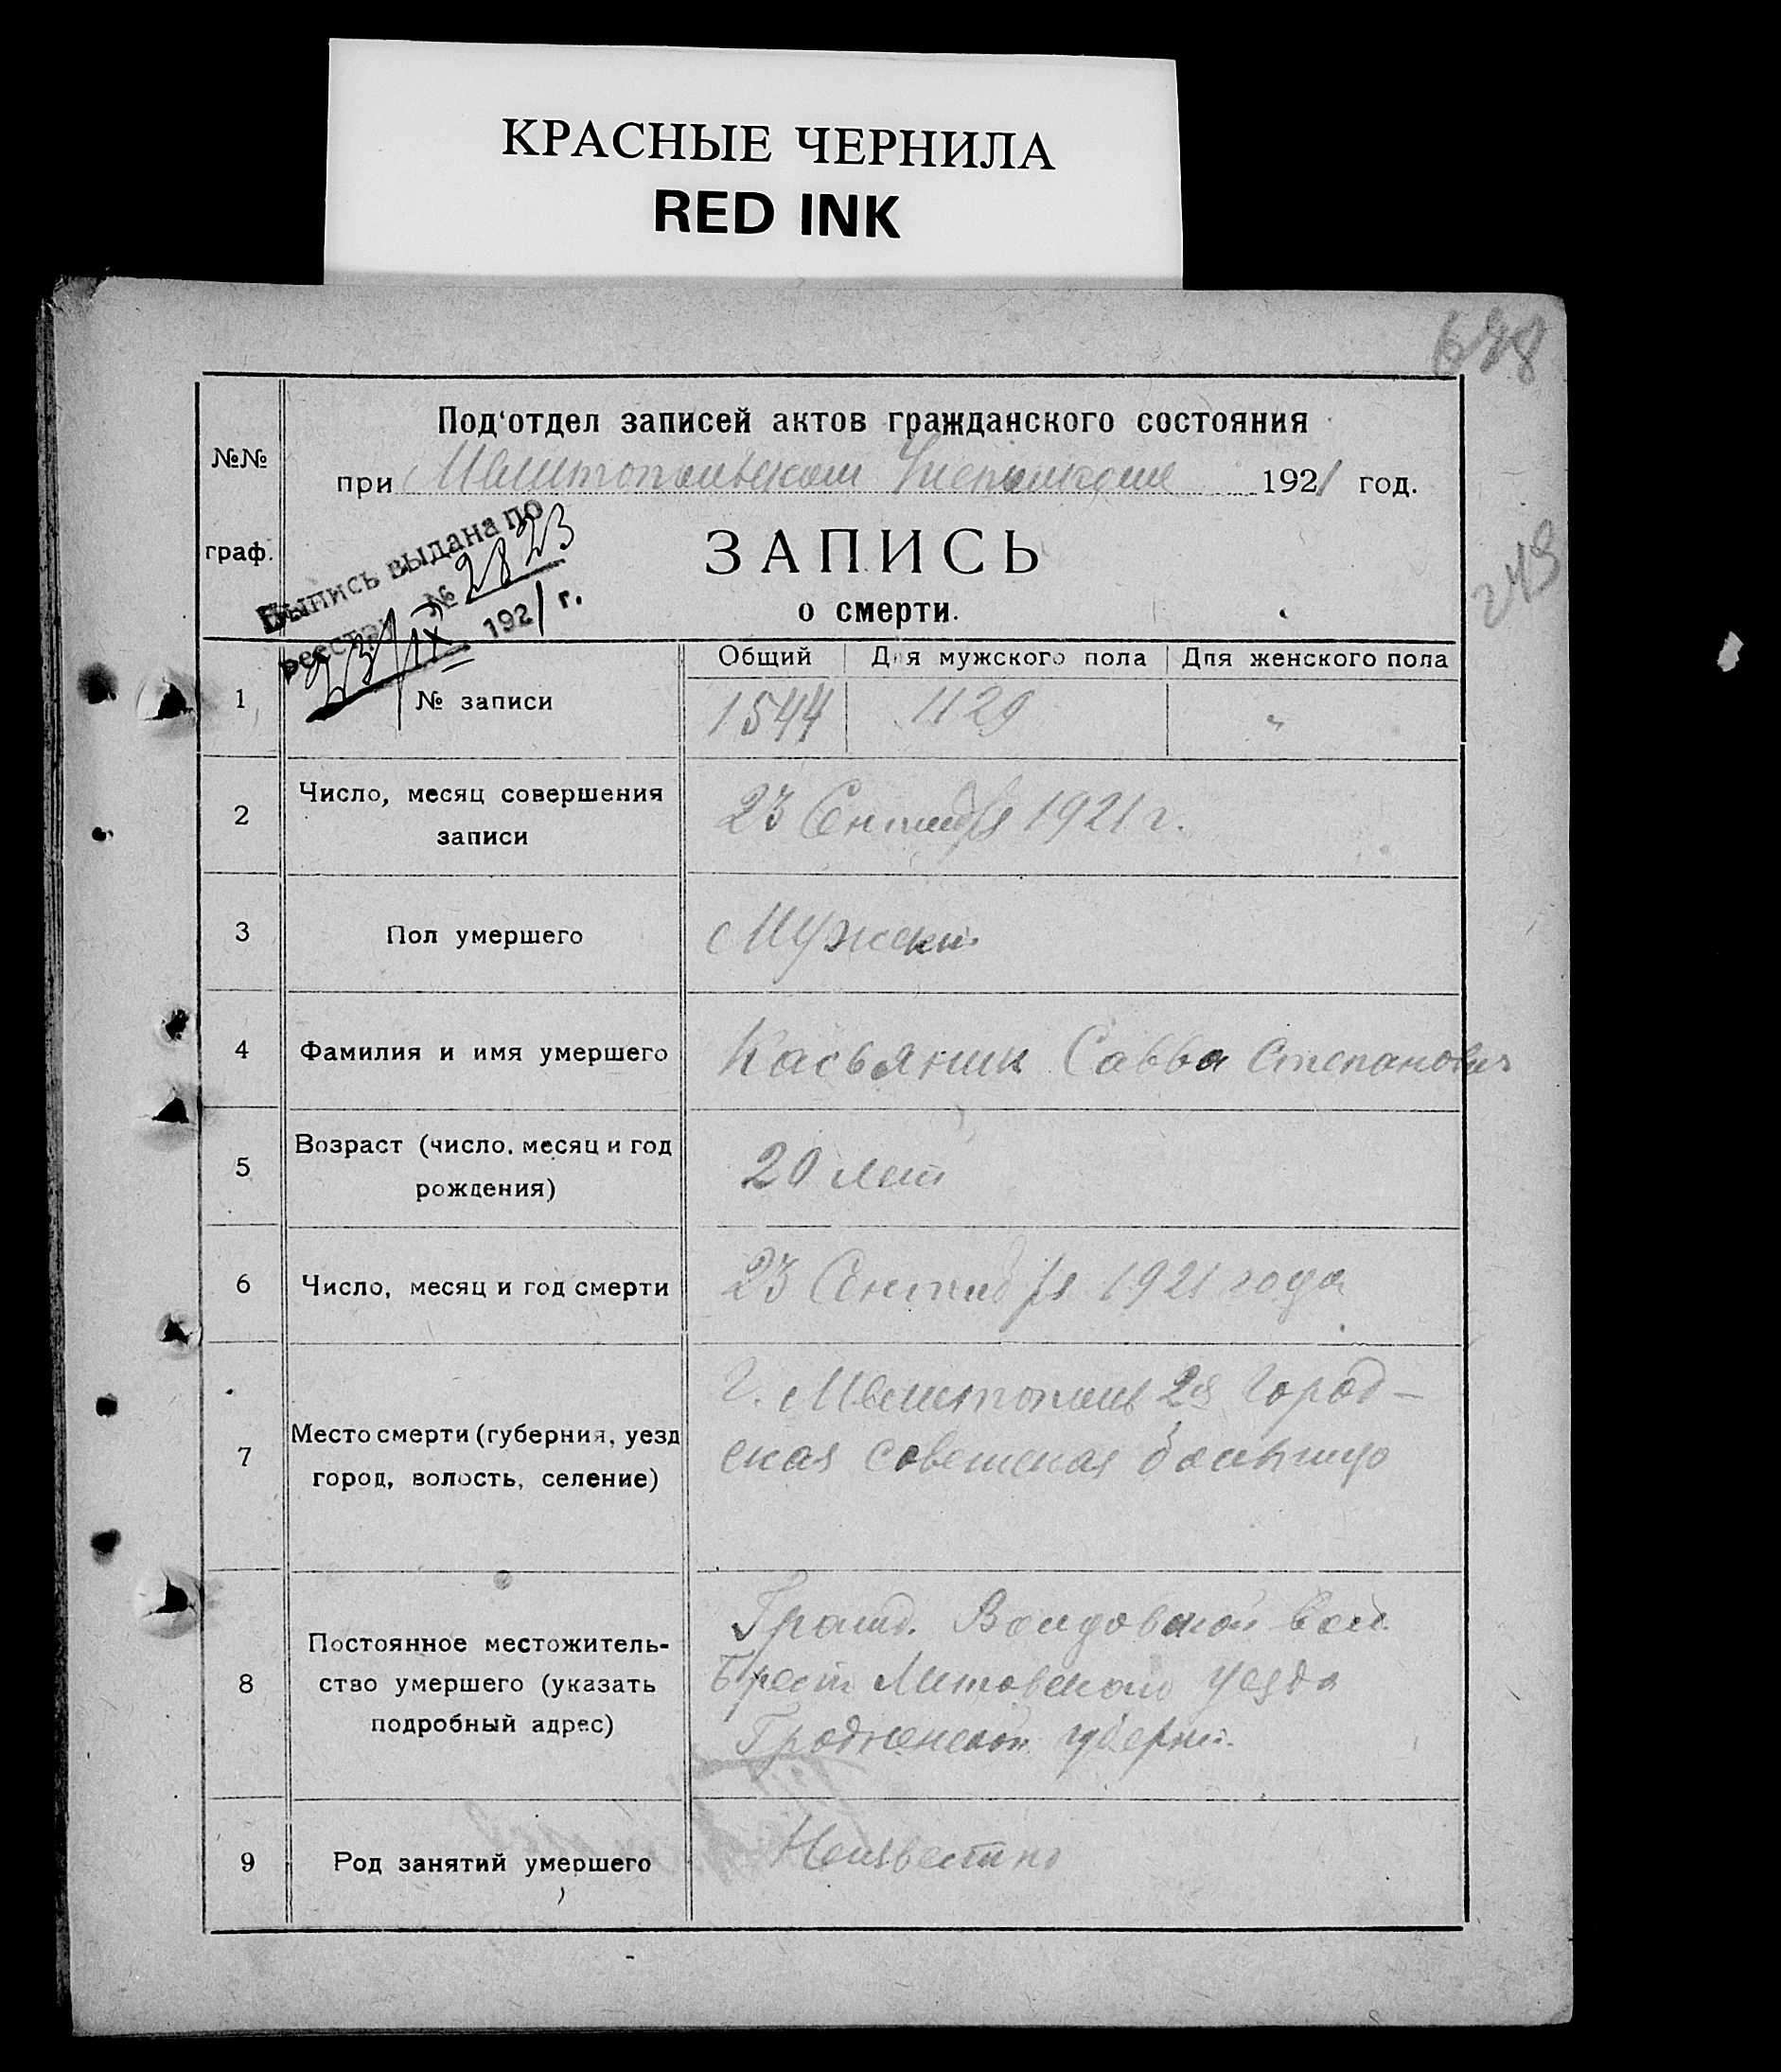 КРАСНЫЕ ЧЕРНИЛА
RED INK
Под'отдел записей актов гражданского состояния
№№
при Мелитопольском Исполкоме 1921 год.
ЗАПИСЬ
граф.
о смерти.
Выпись выдана по
реестру № 2823
23/IX 1921 г.
249
Общий Для мужского пола Для женского пола
1 № записи 1544 1129 "
2 Число, месяц совершения
записи
23 Сентября 1921 г.
3 Пол умершего Мужски
4 Фамилия и имя умершего Касьяник Савва Степанович
5 Возраст (число, месяц и год
рождения)
20 лет
6 Число, месяц и год смерти 23 Сентября 1921 года
7 Место смерти (губерния, уезд
город, волость, селение)
г. Мелитополь 2я Город-
ская советская больница
8 Постоянное местожитель-
ство умершего (указать
подробный адрес)
Гражд. вол.
Брест Литовского уезда
Гродненской губерни.
9 Род занятий умершего Неизвестно